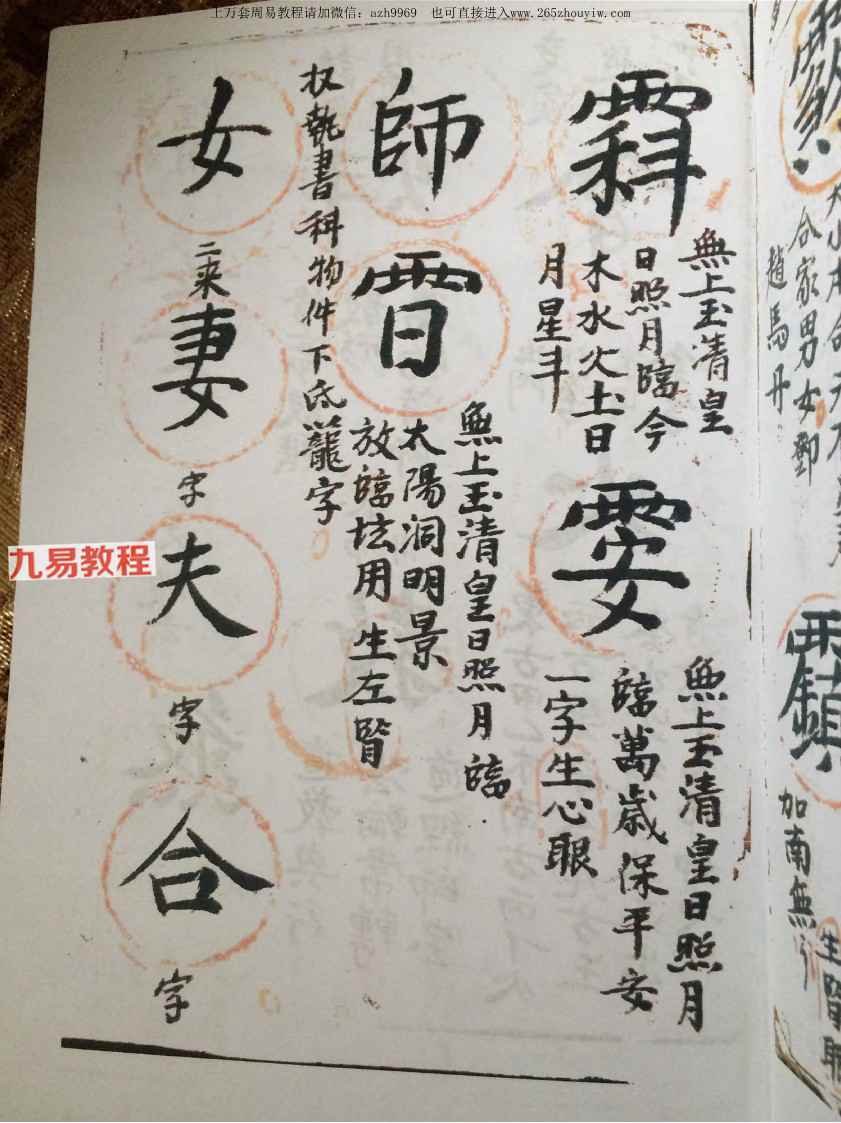 上万套周易教程请加微信：azh9969　也可直接进入www.265zhouyiw.com
無上玉清皇
日照月臨今
木水火土日
月星斗
無上玉清皇日照月
臨萬歲保平安
一字生心眼
師
無上玉清皇日照月臨
太陽洞明景
放臨坛用 生左腎
权執書科物件下氐籠字
女
二来
妻
字
夫
字
合
字
九易教程
合家男女鄧
趙馬丹
加南無
生腎眼